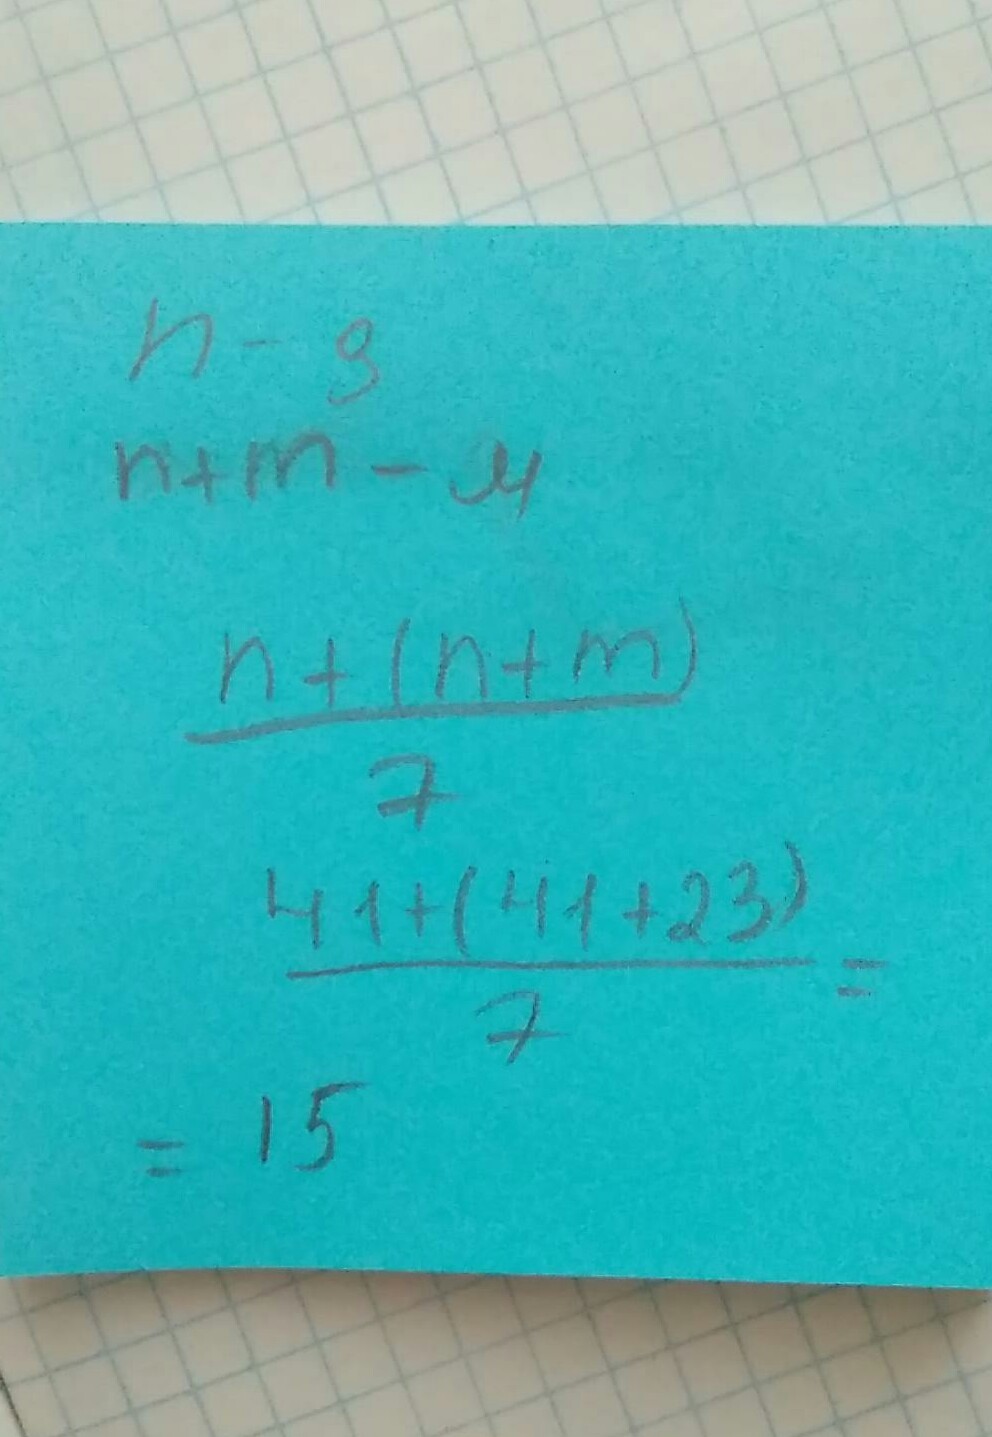 n - д
n+m - м
n+(n+m)
7
41+(41+23) =
7
= 15